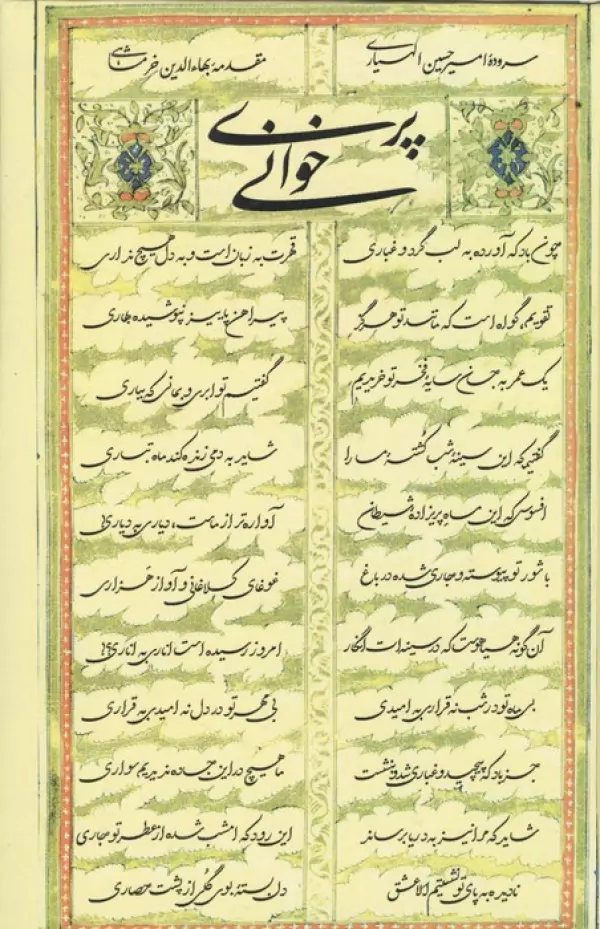 سرودهٔ امیرحسین الهیاری
مقدمهٔ بهاءالدین خرمشاهی
پری خوانی
چون باد که آورده به لب گرد و غباری
قهرت به زبان است و به دل هیچ نداری
تقویم، گواه است که مانند تو هرگز
پیراهن پاییز نپوشیده بهاری
یک عمر به جان سایه فخر تو خریدیم
گفتیم تو ابری و بمانی که بباری
گفتیم که این سینهٔ شب کشتهٔ ما را
شاید به دمی زنده کند ماه تباری
افسوس که این ماه پریزادهٔ شیطان
آواره‌تر از ماست، دیاری به دیاری
با شور تو پیوسته و جاری شده در باغ
غوغای کلاغانی و آواز هزاری
آن گونه هیاهوست که در سینه‌ات انگار
امروز رسیده است اناری به اناری
بی ماه تو در شب نه قراری به امیدی
بی مهر تو در دل نه امیدی به قراری
جز باد که پیچید و غباری شد و ننشست
ما هیچ در این جاده ندیدیم سواری
شاید که مرا نیز به دریا برساند
این رود که امشب شده از عطر تو جاری
نادیده به پای تو نشستیم الا عشق
دل بسته به بوی گلی از پشت حصاری